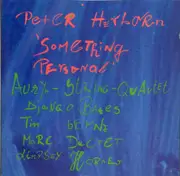 PETER HERBORN
'SOMETHING
PERSONAL'
AURYN-STRING-QUARTET
DJANGO BATES
TIM BERNE
MARC DUCRET
LINDSAY HORNER